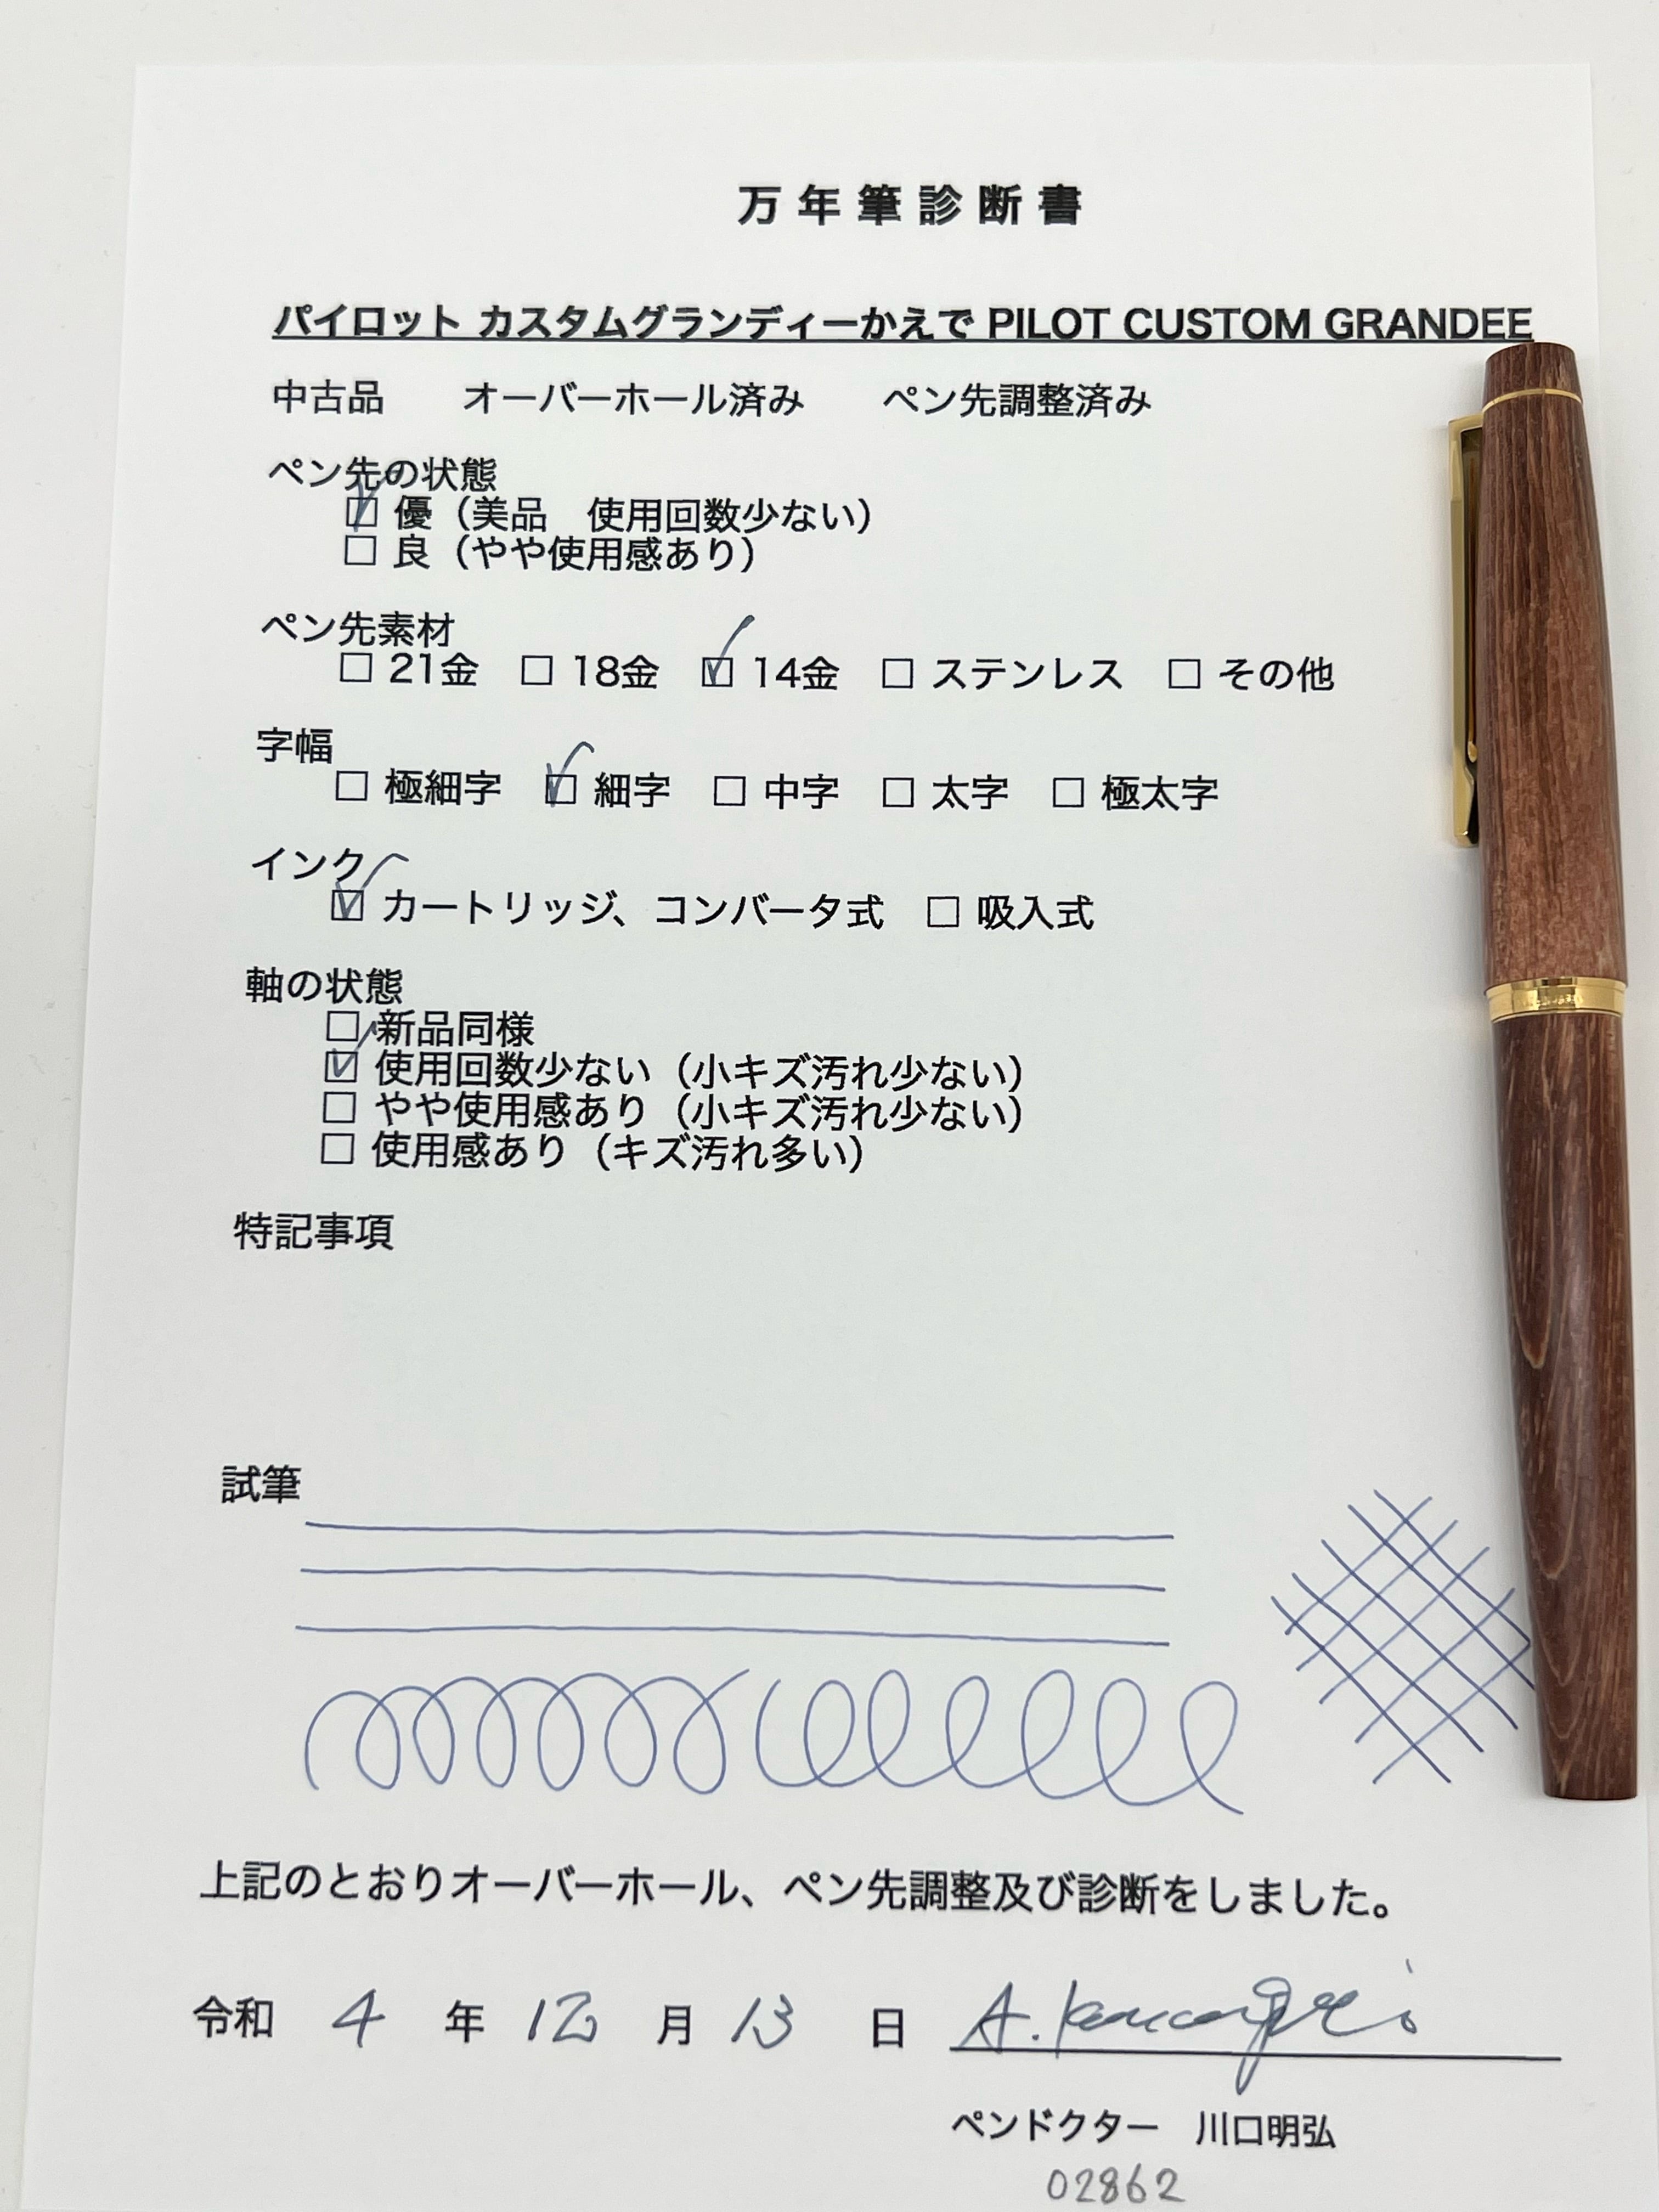 万年筆診断書
パイロット カスタムグランディーかえで PILOT CUSTOM GRANDEE
中古品 オーバーホール済み ペン先調整済み
ペン先の状態
☑ 優（美品 使用回数少ない）
☐ 良（やや使用感あり）
ペン先素材
☐ 21金 ☐ 18金 ☑ 14金 ☐ ステンレス ☐ その他
字幅
☐ 極細字 ☑ 細字 ☐ 中字 ☐ 太字 ☐ 極太字
インク
☑ カートリッジ、コンバータ式 ☐ 吸入式
軸の状態
☐ 新品同様
☑ 使用回数少ない（小キズ汚れ少ない）
☐ やや使用感あり（小キズ汚れ少ない）
☐ 使用感あり（キズ汚れ多い）
特記事項
試筆
上記のとおりオーバーホール、ペン先調整及び診断をしました。
令和 4 年 12 月 13 日 A. Kawaguchi
ペンドクター 川口明弘
02862